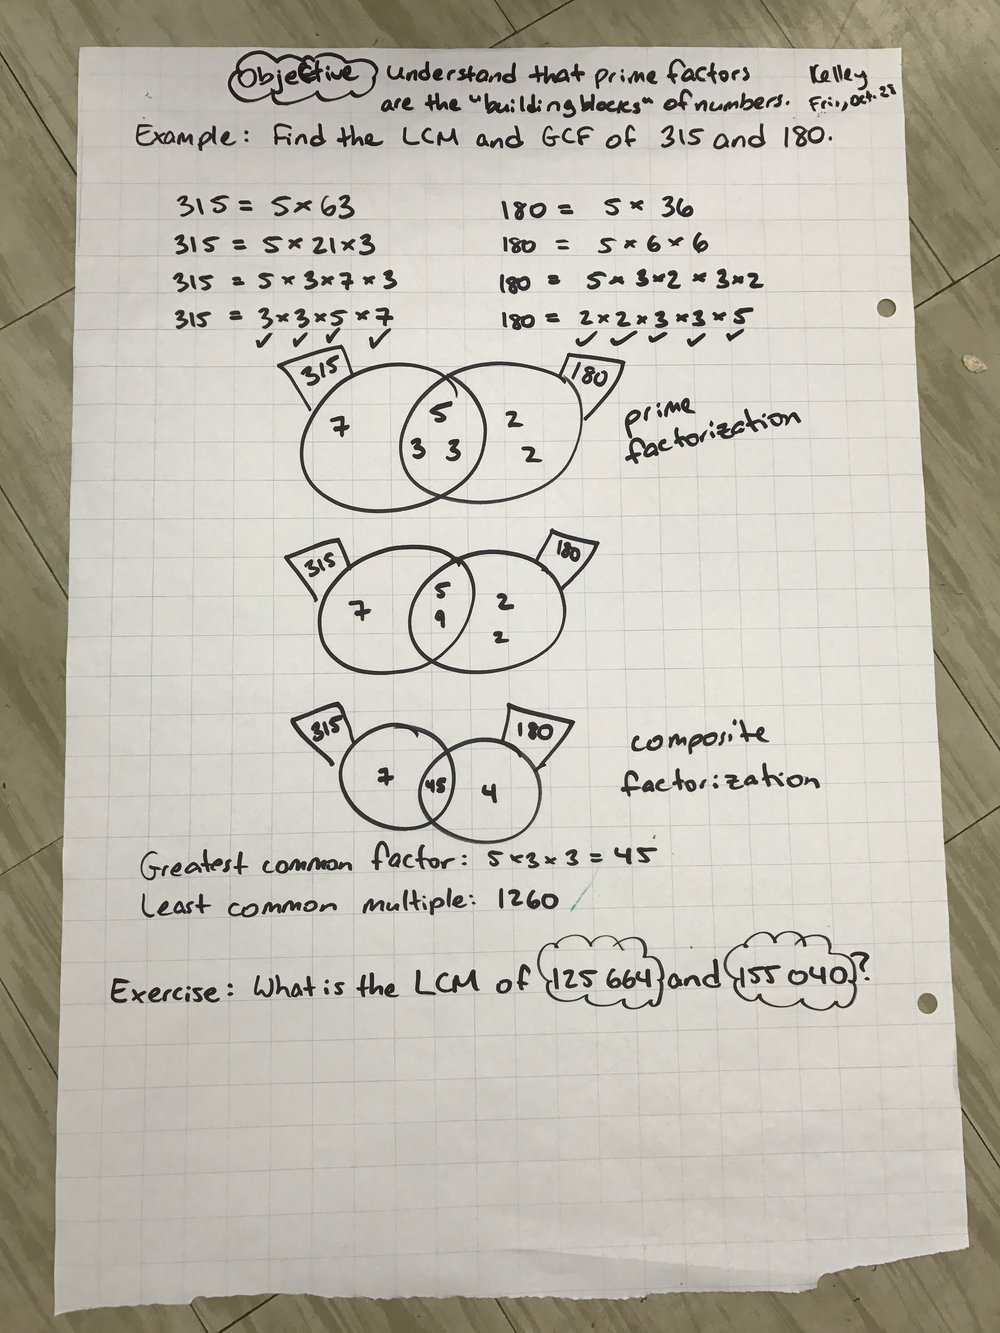 Objective Understand that prime factors
are the "building blocks" of numbers.
Kelley
Fri., Oct. 28
Example: Find the LCM and GCF of 315 and 180.
315 = 5 × 63
315 = 5 × 21 × 3
315 = 5 × 3 × 7 × 3
315 = 3 × 3 × 5 × 7
✓ ✓ ✓ ✓
180 = 5 × 36
180 = 5 × 6 × 6
180 = 5 × 3 × 2 × 3 × 2
180 = 2 × 2 × 3 × 3 × 5
✓ ✓ ✓ ✓ ✓
315
180
7
5
3 3
2
2
prime
factorization
315
180
7
5
9
2
2
315
180
7
45
4
composite
factorization
Greatest common factor: 5 × 3 × 3 = 45
Least common multiple: 1260
Exercise: What is the LCM of 125 664 and 155 040?